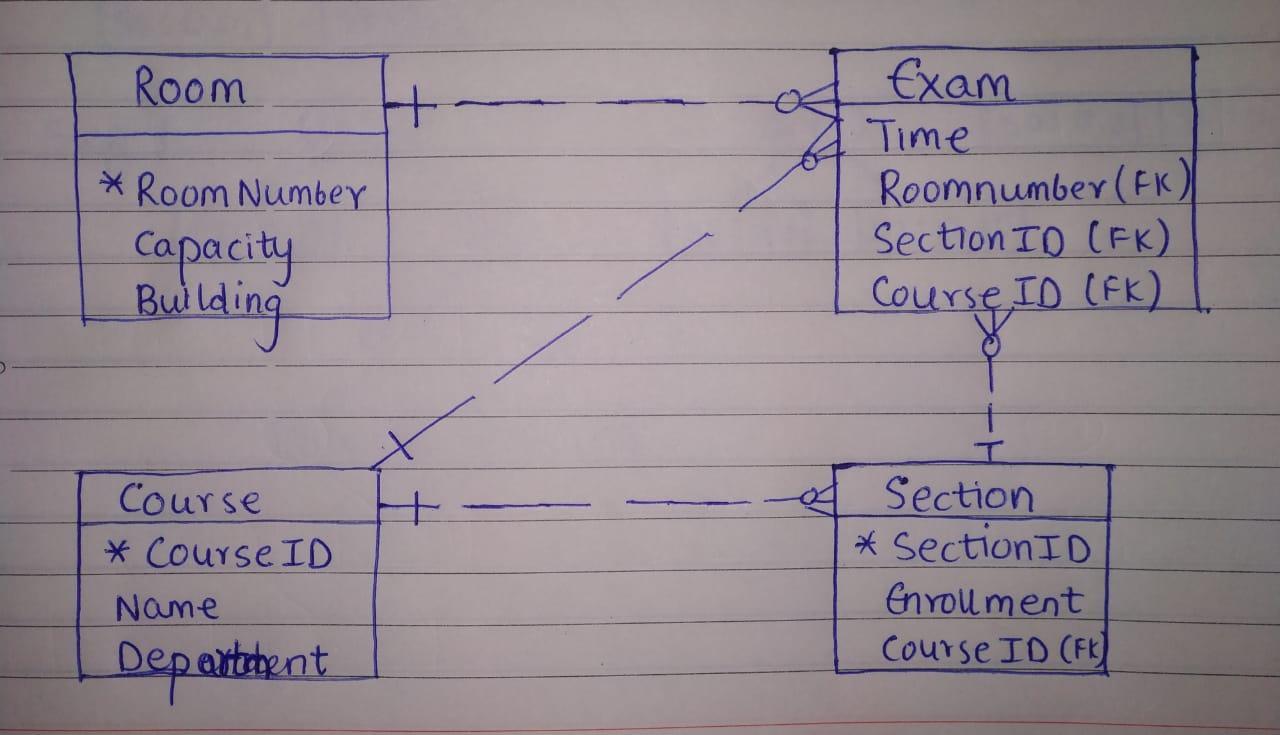 Room
* RoomNumber
Capacity
Building
Exam
Time
Roomnumber (FK)
SectionID (FK)
CourseID (FK)
Course
* CourseID
Name
Department
Section
* SectionID
Enrollment
CourseID (FK)